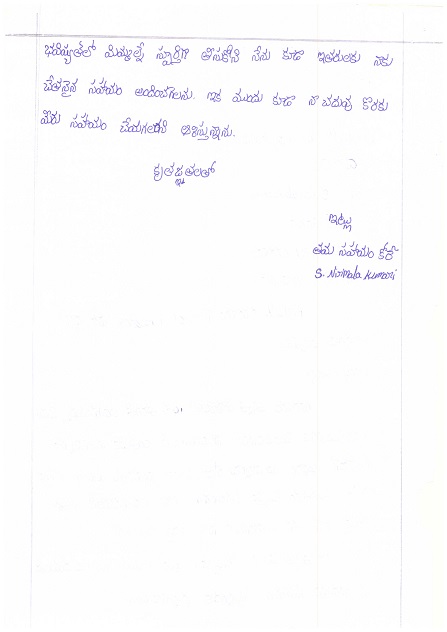 భవిష్యత్‌లో మిమ్మల్నే స్ఫూర్తిగా తీసుకోని నేను కూడా ఇతరులకు నాకు
చేతనైన సహాయం అందించగలను. ఇక ముందు కూడా నా చదువు కొరకు
మీరు సహాయం చేయగలరని ఆశిస్తున్నాను.
కృతజ్ఞతలతో
ఇట్లు
తమ సహాయం కోరే
S. Nirmala Kumari